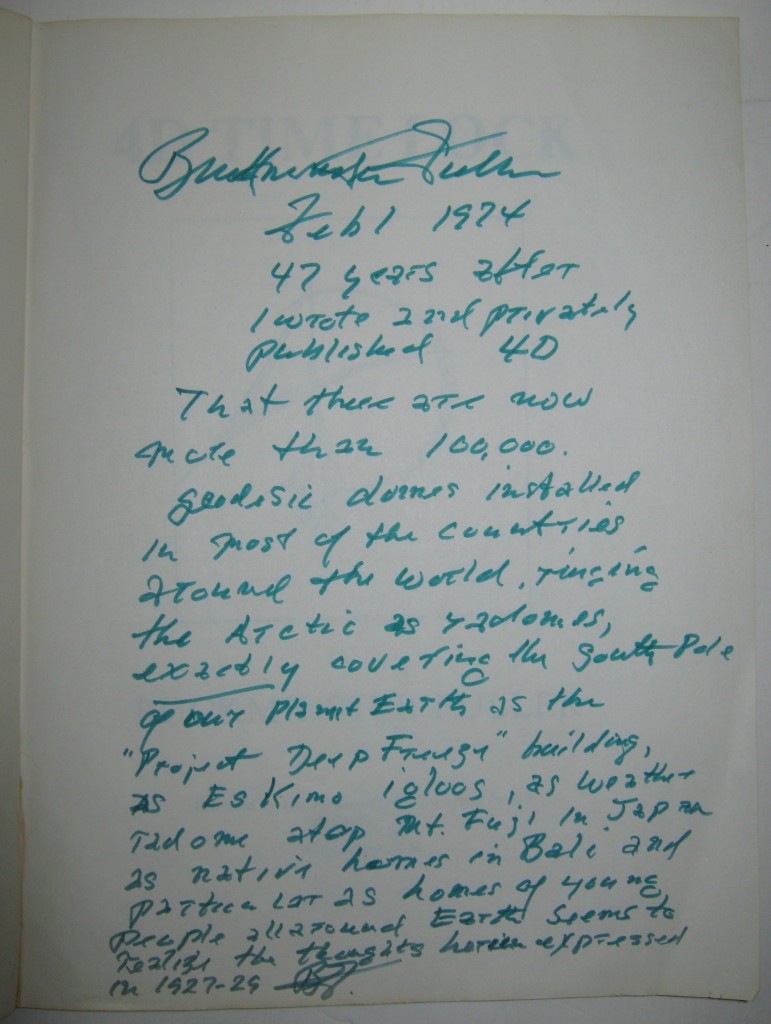 Buckminster Fuller
Feb 1 1974
47 years after
I wrote and privately
published 4D
That there are now
more than 100,000.
geodesic domes installed
in most of the countries
around the world, ringing
the Arctic as radomes,
exactly covering the South Pole
of our planet Earth as the
"Project Deep Freeze" building,
as Eskimo igloos, as weather
radome atop Mt. Fuji in Japan
as native homes in Bali and
particular as homes of young
people all around Earth seems to
realize the thoughts herein expressed
in 1927-29 BF.
4D TIME LOCK